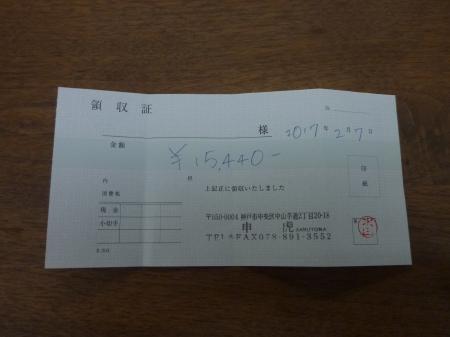 領収証
No.
様 2017年2月7日
金額 ¥15,440-
内 但
消費税 上記正に領収いたしました
印紙
現金
小切手
〒650-0004 神戸市中央区中山手通2丁目20-18
申虎 SARUTORA
TEL&FAX 078-891-3552